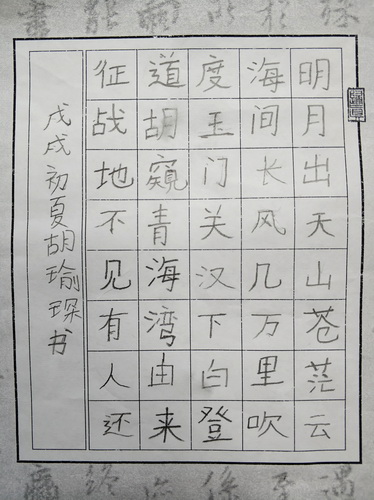 明月出天山苍茫云
海间长风几万里吹
度玉门关汉下白登
道胡窥青海湾由来
征战地不见有人还
戊戌初夏胡瑜琛书